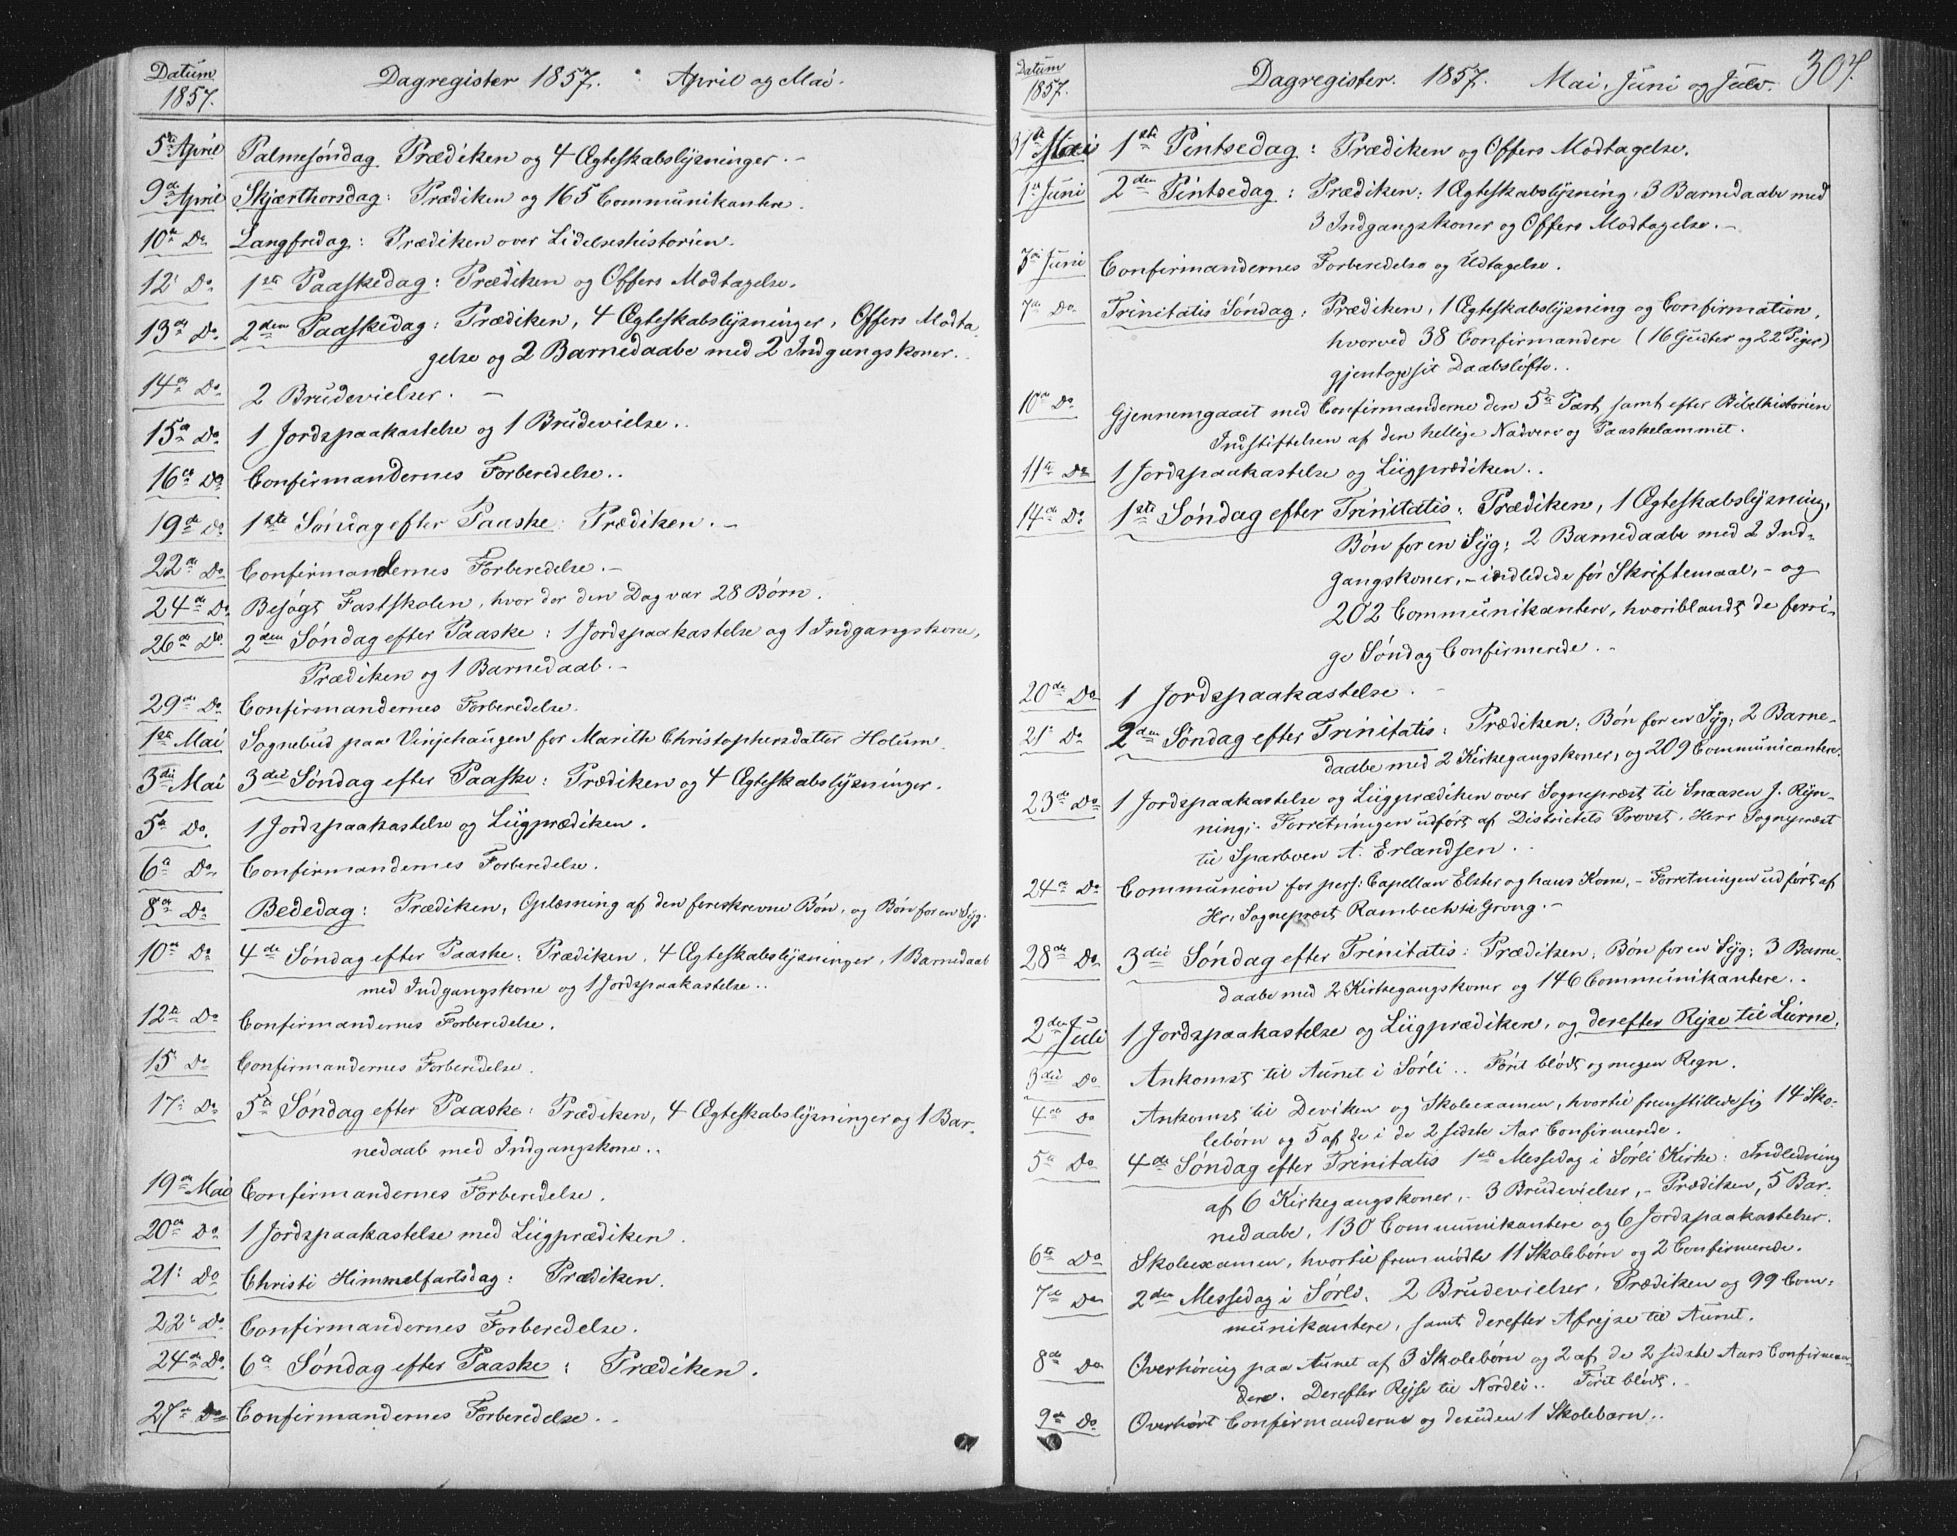 Datum
1857.
Dagregister 1857. April og Mai.
5te April Palmesøndag. Prædiken og 4 Ægteskabslysninger. –
9de April Skjærthorsdag: Prædiken og 165 Communikantere.
10de Do Langfredag: Prædiken over Lidelseshistorien.
12' Do 1ste Paaskedag: Prædiken og Offers Modtagelse.
13de Do 2den Paaskedag: Prædiken, 4 Ægteskabslysninger, Offers Modta
gelse og 2 Barnedaabe med 2 Indgangskoner.
14de Do 2 Brudevielser. –
15de Do 1 Jordspaakastelse og 1 Brudevielse..
16de Do Confirmandernes Forberedelse..
19de Do 1ste Søndag efter Paaske: Prædiken. –
22de Do Confirmandernes Forberedelse. –
24de Do Besøgt Fastskolen, hvor der den Dag var 28 Børn.
26de Do 2den Søndag efter Paaske: 1 Jordspaakastelse og 1 Indgangskone,
Prædiken og 1 Barnedaab. –
29de Do Confirmandernes Forberedelse.
1ste Mai Sognebud paa Vinjehaugen for Marith Christophersdatter Holum.
3die Mai 3die Søndag efter Paaske: Prædiken og 4 Ægteskabslysninger.
5te Do. 1 Jordspaakastelse og Liigprædiken.
6te Do. Confirmandernes Forberedelse.
8de Do Bededag: Prædiken, Oplæsning af den foreskrevne Bøn, og Bøn for en Syg.
10de Do 4de Søndag efter Paaske: Prædiken, 4 Ægteskabslysninger, 1 Barnedaab
med Indgangskone og 1 Jordspaakastelse..
12te Do Confirmandernes Forberedelse.
15' Do Confirmandernes Forberedelse.
17' Do 5te Søndag efter Paaske: Prædiken, 4 Ægteskabslysninger og 1 Bar-
nedaab med Indgangskone..
19de Mai Confirmandernes Forberedelse.
20de Do 1 Jordspaakastelse med Liigprædiken.
21' Do Christi Himmelfartsdag: Prædiken.
22' Do Confirmandernes Forberedelse.
24de Do. 6te Søndag efter Paaske: Prædiken.
27de Do Confirmandernes Forberedelse. –
Datum
1857.
Dagregister. 1857. Mai, Juni og Juli. 307.
31te Mai 1ste Pintsedag: Prædiken og Offers Modtagelse.
1ste Juni 2den Pintsedag: Prædiken: 1 Ægteskabslysning, 3 Barnedaabe med
3 Indgangskoner og Offers Modtagelse. –
3die Juni Confirmandernes Forberedelse og Udtagelse.
7de Do Trinitatis Søndag: Prædiken, 1 Ægteskabslysning og Confirmation,
hvorved 38 Confirmandere (16 Gutter og 22 Piger)
gjentoge sit Daabsløfte..
10de Do Gjennemgaaet med Confirmanderne den 5te Part, samt efter Bibelhistorien
Indstiftelsen af den hellige Nadvere og Paaskelammet.
11te Do 1 Jordspaakastelse og Liigprædiken..
14de Do 1ste Søndag efter Trinitatis: Prædiken, 1 Ægteskabslysning,
Bøn for en Syg: 2 Barnedaabe med 2 Ind-
gangskoner, – indledede før Skriftemaal, – og
202 Communikantere, hvoriblandt de forri-
ge Søndag Confirmerede. –
20de Do 1 Jordspaakastelse. –
21' Do 2den Søndag efter Trinitatis: Prædiken: Bøn for en Syg; 2 Barne-
daabe med 2 Kirkegangskoner, og 209 Communicantere.
23de Do 1 Jordspaakastelse og Liigprædiken over Sognepræst til Snaasen J. Rÿn-
ning; – Forretningen udført af Districtets Provst, Herr Sognepræst
til Sparboen A. Erlandsen..
24de Do Communion for pers: Capellan Elster og hans Kone, – Forretningen udført af
Hr. Sognepræst Rambech til Grong. –
28de Do 3die Søndag efter Trinitatis: Prædiken; Bøn for en Syg; 3 Barne-
daabe med 2 Kirkegangskoner og 146 Communikantere..
2den Juli 1 Jordspaakastelse og Liigprædiken, og derefter Rejse til Lierne.
3die Do Ankomst til Aunet i Sørli.. Føret blødt og megen Regn.
4de Do Ankomst til Deviken og Skoleexamen, hvortil fremstillede sig 14 Sko-
lebørn og 5 af de i de 2 sidste Aar Confirmerede.
5te Do 4de Søndag efter Trinitatis 1ste Messedag i Sørli Kirke: Indledning
af 6 Kirkegangskoner, – 3 Brudevielser, – Prædiken, 5 Bar-
nedaabe, 130 Communikantere og 6 Jordspaakastelser.
6te Do Skoleexamen, hvortil fremmødte 11 Skolebørn og 2 Confirmerede.
7de Do 2den Messedag i Sørli. 2 Brudevielser, Prædiken og 99 Com-
munikantere, samt derefter Afrejse til Aunet.
8de Do Overhøring paa Aunet af 3 Skolebørn og 2 af de 2 sidste Aars Confirman-
dere. Derefter Rejse til Nordli.. Føret blødt. –
9de Do Overhørt Confirmanderne og desuden 1 Skolebarn..